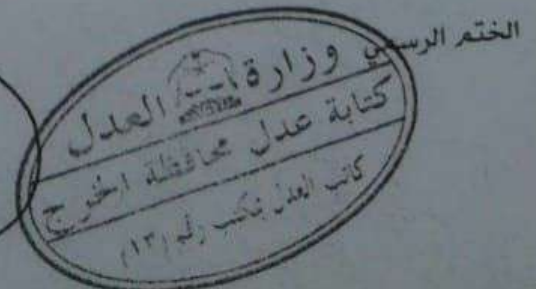 الختم الرسمي
وزارة العدل
كتابة عدل محافظة الخرج
كاتب العدل بمكتب رقم (١٣)